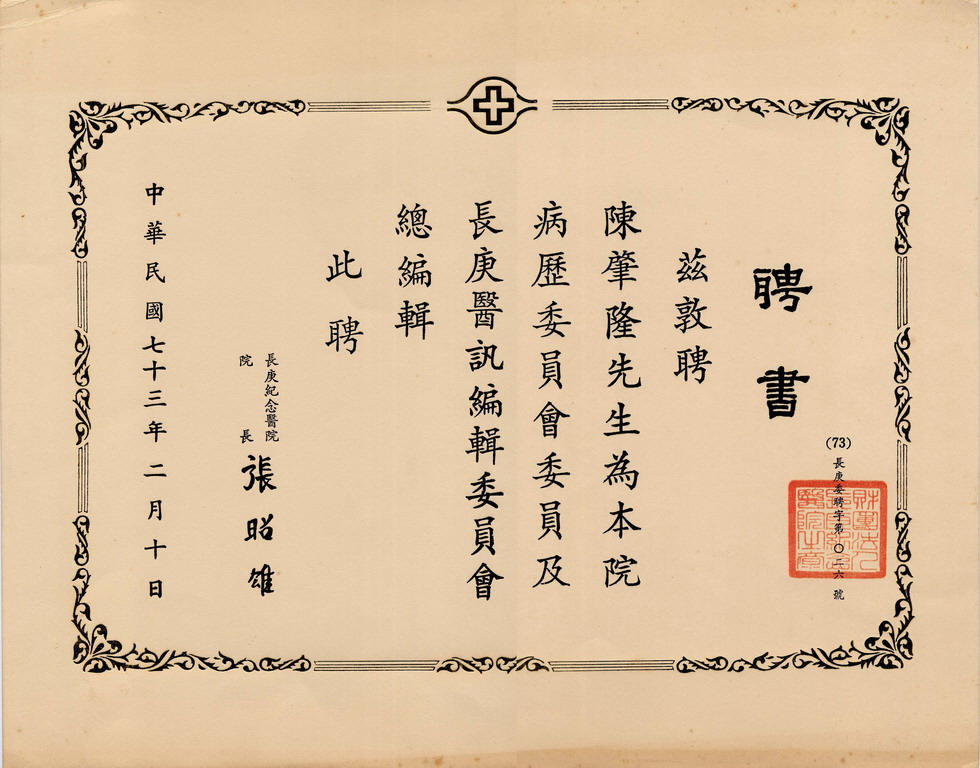 聘書
(73)長庚委聘字第〇二六號
茲敦聘
陳肇隆先生為本院
病歷委員會委員及
長庚醫訊編輯委員會
總編輯
此聘
長庚紀念醫院
院長 張昭雄
中華民國七十三年二月十日